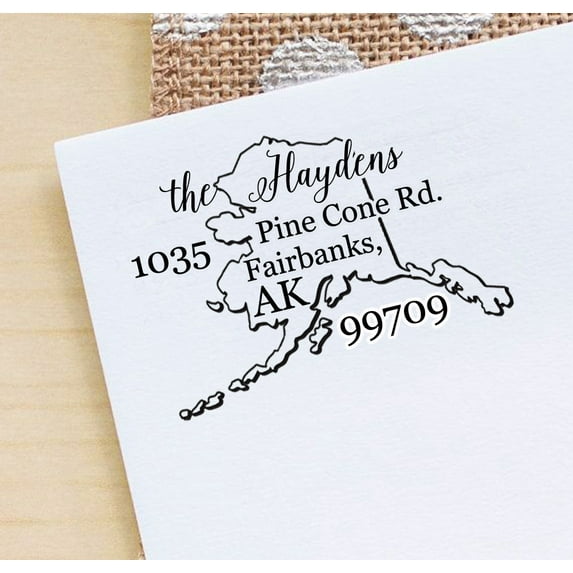 the Haydens
1035 Pine Cone Rd.
Fairbanks,
AK 99709